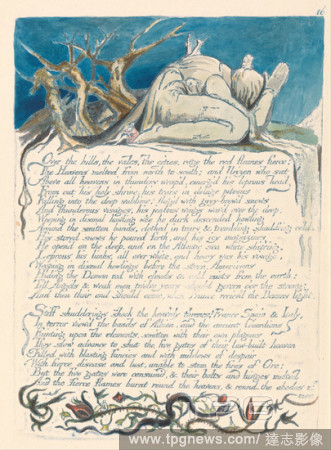 16
Over the hills, the vales, the cities, rage the red flames fierce:
The Heavens melted from north to south; and Urizen who sat
Above all heavens in thunders wrap'd, emerg'd his leprous head
From out his holy shrine, his tears in deluge piteous
Falling into the deep sublime; flag'd with grey-brow'd snows
And thunderous visages, his jealous wings wav'd over the deep;
Weeping in dismal howling woe he dark descended howling
Around the smitten bands, clothed in tears & trembling shudd'ring cold.
His stored snows he poured forth, and his icy magazines
He open'd on the deep, and on the Atlantic sea white shiv'ring.
Leprous his limbs, all over white, and hoary was his visage.
Weeping in dismal howlings before the stern Americans
Hiding the Demon red with clouds & cold mists from the earth;
Till Angels & weak men twelve years should govern o'er the strong:
And then their end should come, when France reciev'd the Demons light.
Stiff shudderings shook the heav'nly thrones! France Spain & Italy,
In terror view'd the bands of Albion, and the ancient Guardians
Fainting upon the elements, smitten with their own plagues
They slow advance to shut the five gates of their law-built heaven
Filled with blasting fancies and with mildews of despair
With fierce disease and lust, unable to stem the fires of Orc;
But the five gates were consum'd, & their bolts and hinges melted
And the fierce flames burnt round the heavens, & round the abodes of men
www.tpgnews.com / 達志影像